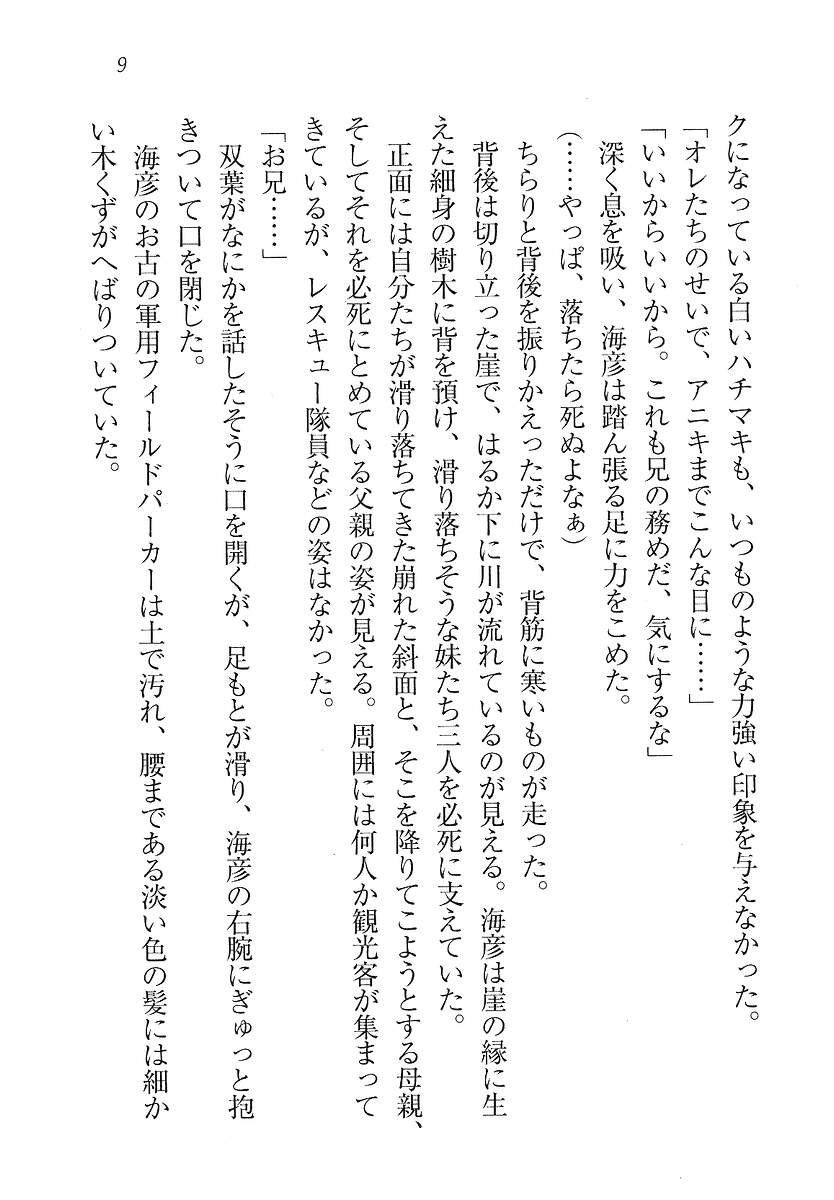 9
クになっている白いハチマキも、いつものような力強い印象を与えなかった。
「オレたちのせいで、アニキまでこんな目に……」
「いいからいいから。これも兄の務めだ、気にするな」
深く息を吸い、海彦は踏ん張る足に力をこめた。
（……やっぱ、落ちたら死ぬよなぁ）
ちらりと背後を振りかえっただけで、背筋に寒いものが走った。
背後は切り立った崖で、はるか下に川が流れているのが見える。海彦は崖の縁に生
えた細身の樹木に背を預け、滑り落ちそうな妹たち三人を必死に支えていた。
正面には自分たちが滑り落ちてきた崩れた斜面と、そこを降りてこようとする母親、
そしてそれを必死にとめている父親の姿が見える。周囲には何人か観光客が集まって
きているが、レスキュー隊員などの姿はなかった。
「お兄……」
双葉がなにかを話したそうに口を開くが、足もとが滑り、海彦の右腕にぎゅっと抱
きついて口を閉じた。
海彦のお古の軍用フィールドパーカーは土で汚れ、腰まである淡い色の髪には細か
い木くずがへばりついていた。